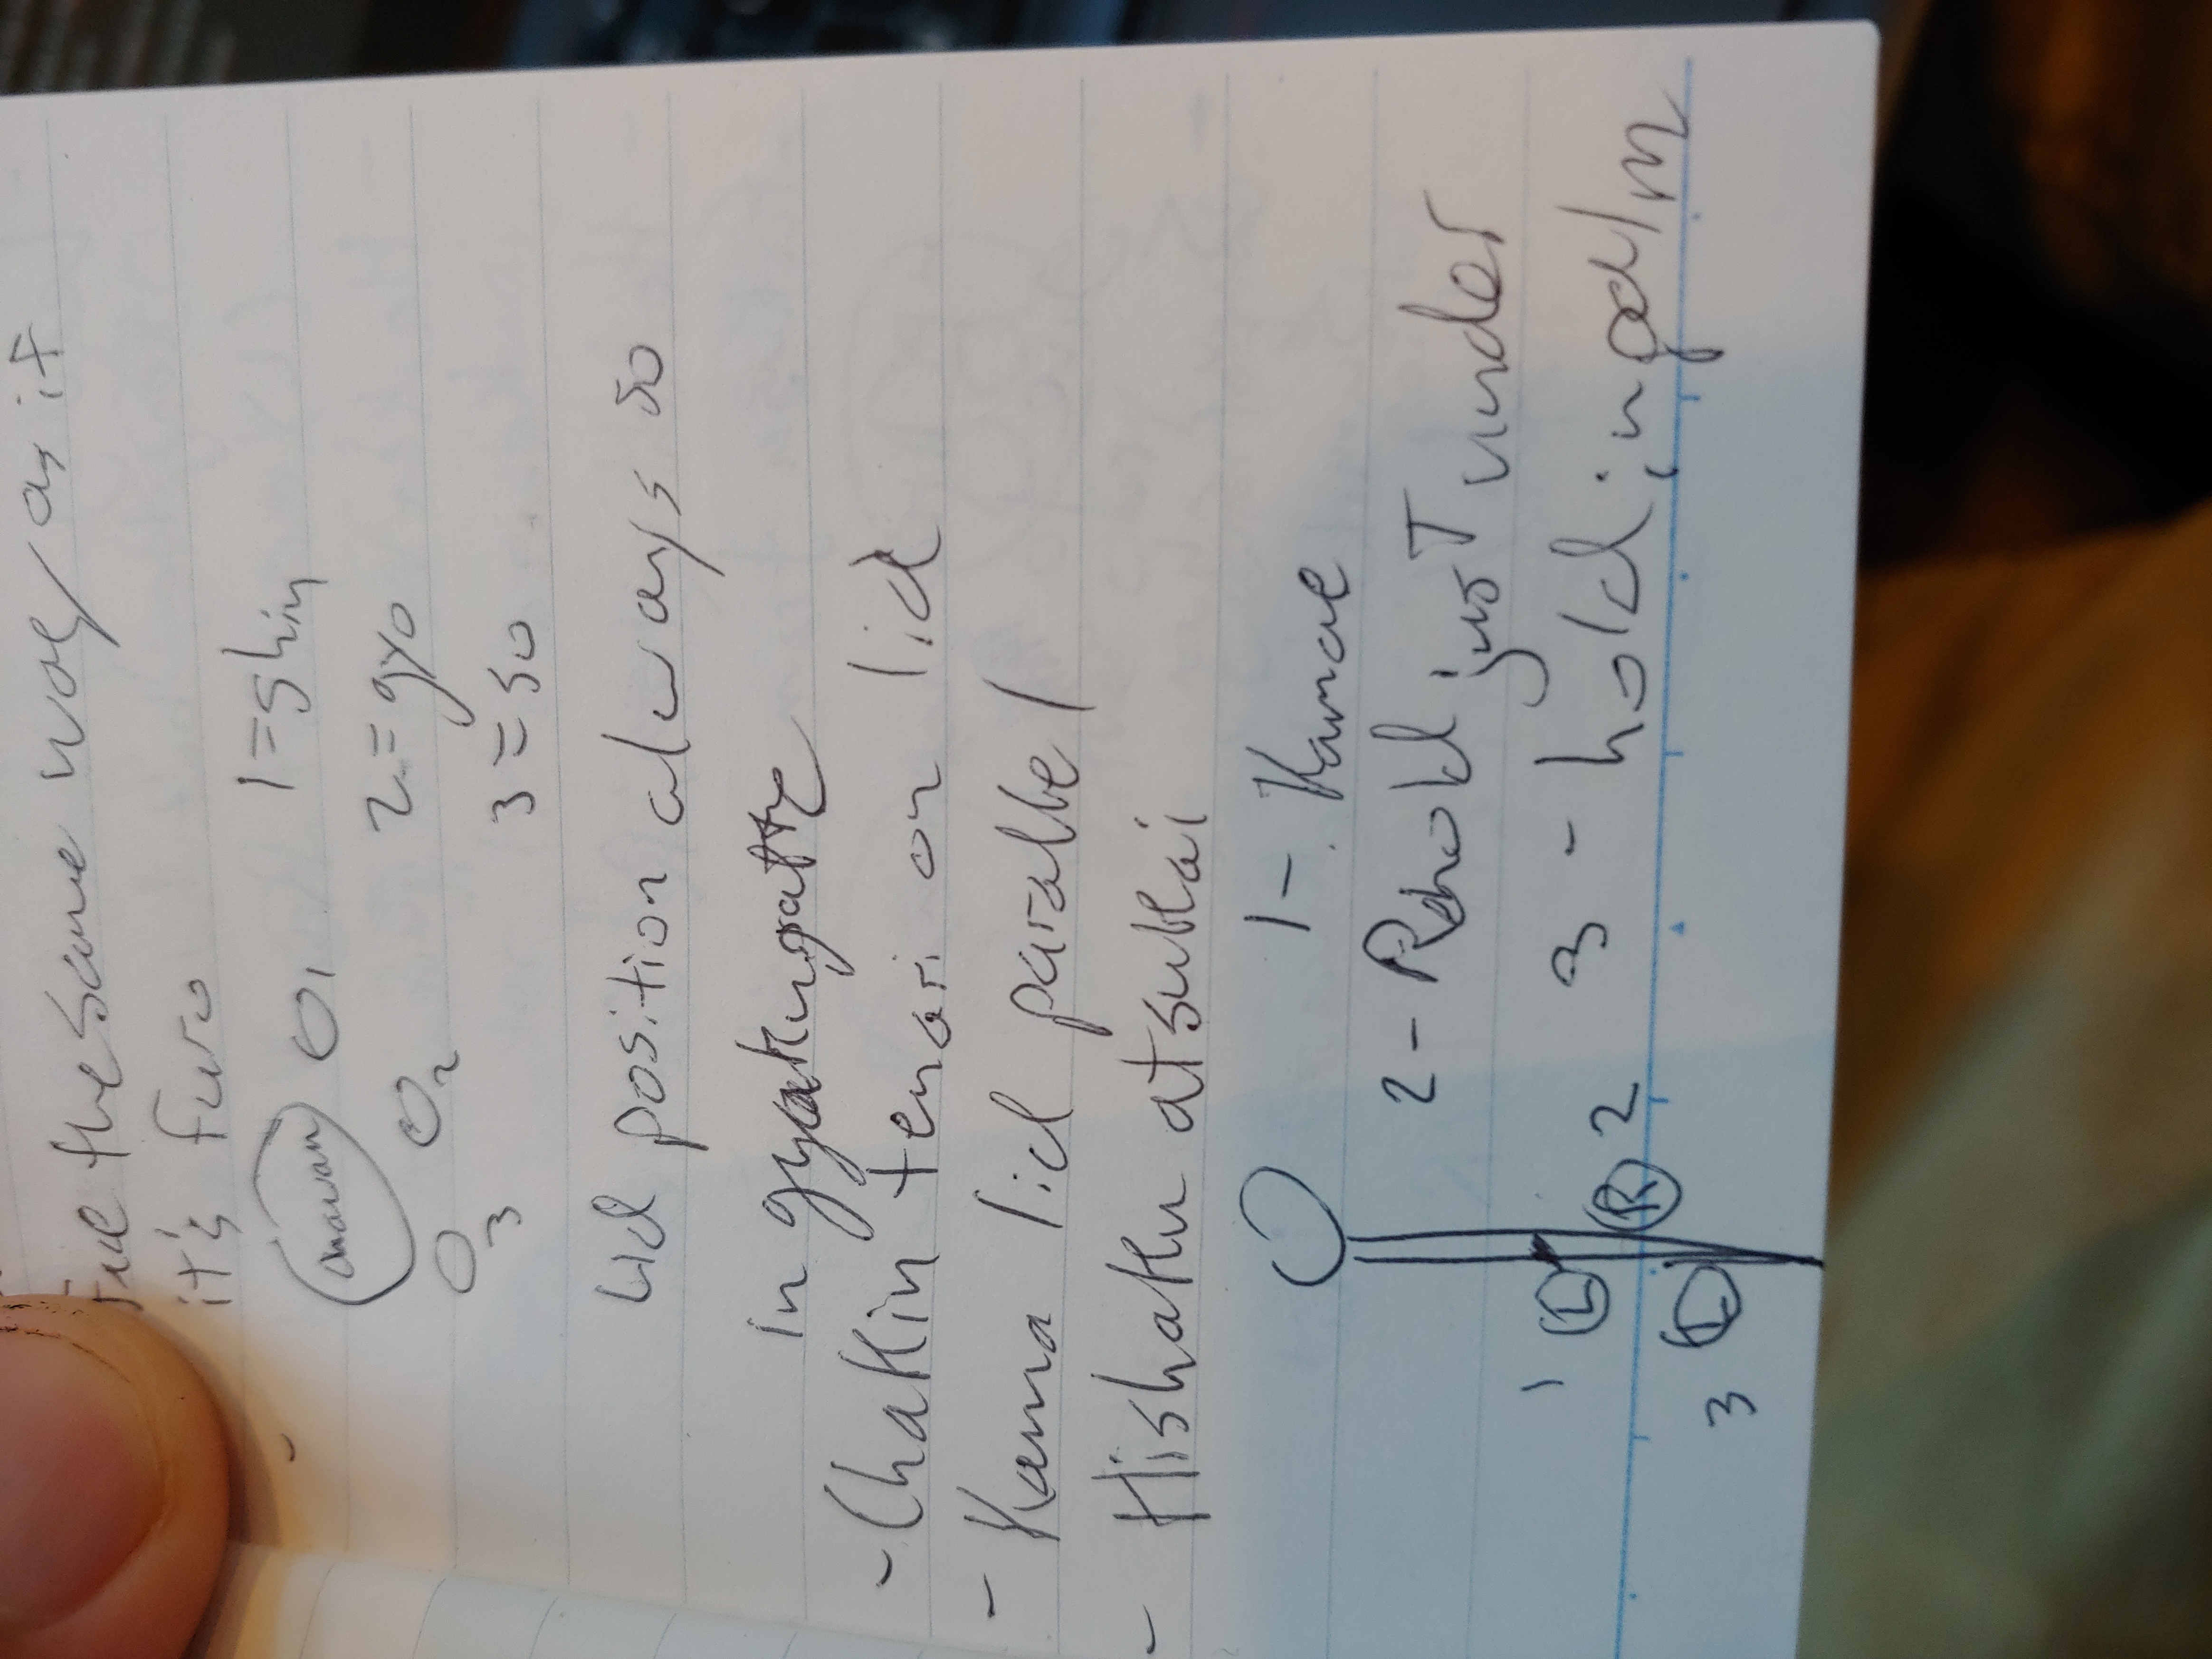 the same way as it
it's furo
chawan O1 1 = shin
O2 2 = gyo
O3 3 = so
Lid position always so
in gyakugatte
- Chakin temari on lid
- Kama lid parallel
- Hishaku atsukai
1 - Kamae
2 - R hold just under
3 - holding palm
1 L R 2
3 L